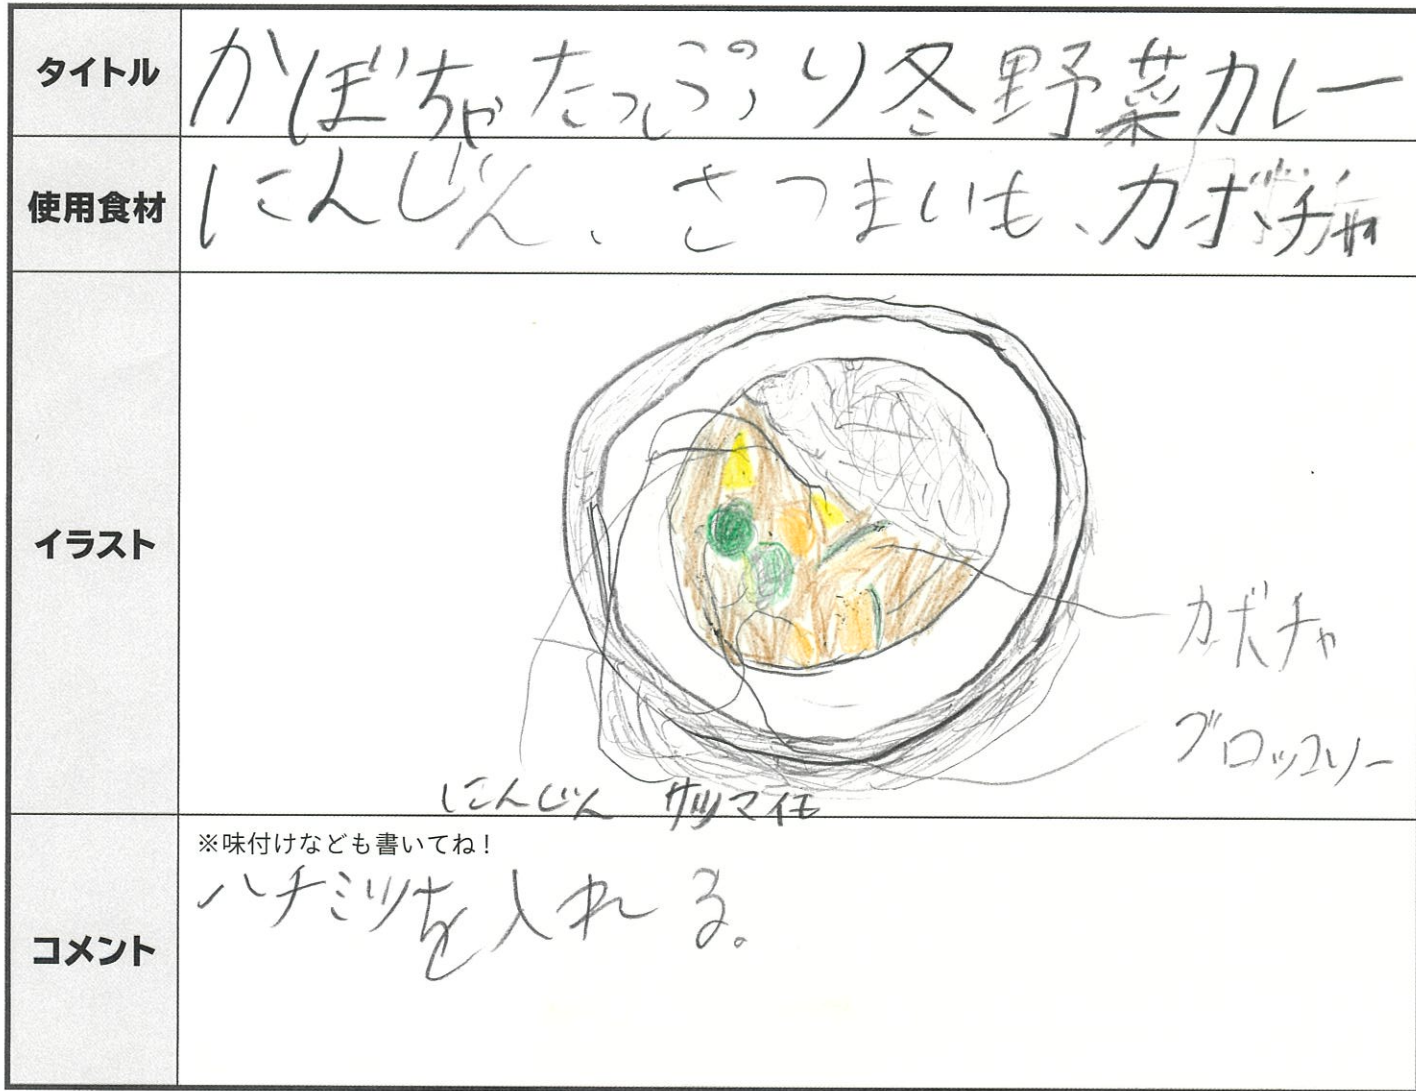 タイトル
かぼちゃたっぷり冬野菜カレー
使用食材
にんじん、さつまいも、カボチャ
イラスト
カボチャ
ブロッコリー
にんじん サツマイモ
コメント
※味付けなども書いてね！
ハチミツを入れる。